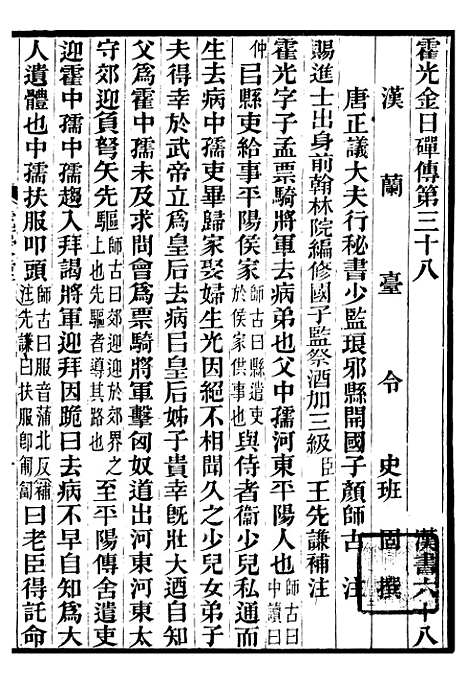 霍光金日磾傳第三十八　漢書六十八
漢蘭臺令史班固撰
唐正議大夫行秘書少監琅邪縣開國子顏師古注
賜進士出身前翰林院編修國子監祭酒加三級臣王先謙補注
霍光字子孟票騎將軍去病弟也父中孺河東平陽人也師古曰中讀曰
仲曰縣吏給事平陽侯家師古曰縣遣吏於侯家供事也與侍者衞少兒私通而
生去病中孺吏畢歸家娶婦生光因絕不相聞久之少兒女弟子
夫得幸於武帝立爲皇后去病曰皇后姊子貴幸旣壯大迺自知
父爲霍中孺未及求問會爲票騎將軍擊匈奴道出河東河東太
守郊迎負弩矢先驅師古曰郊迎迎於郊界之上也先驅者導其路也至平陽傳舍遣吏
迎霍中孺中孺趨入拜謁將軍迎拜因跪曰去病不早自知爲大
人遺體也中孺扶服叩頭師古曰服音蒲北反補注先謙曰扶服卽匍匐曰老臣得託命